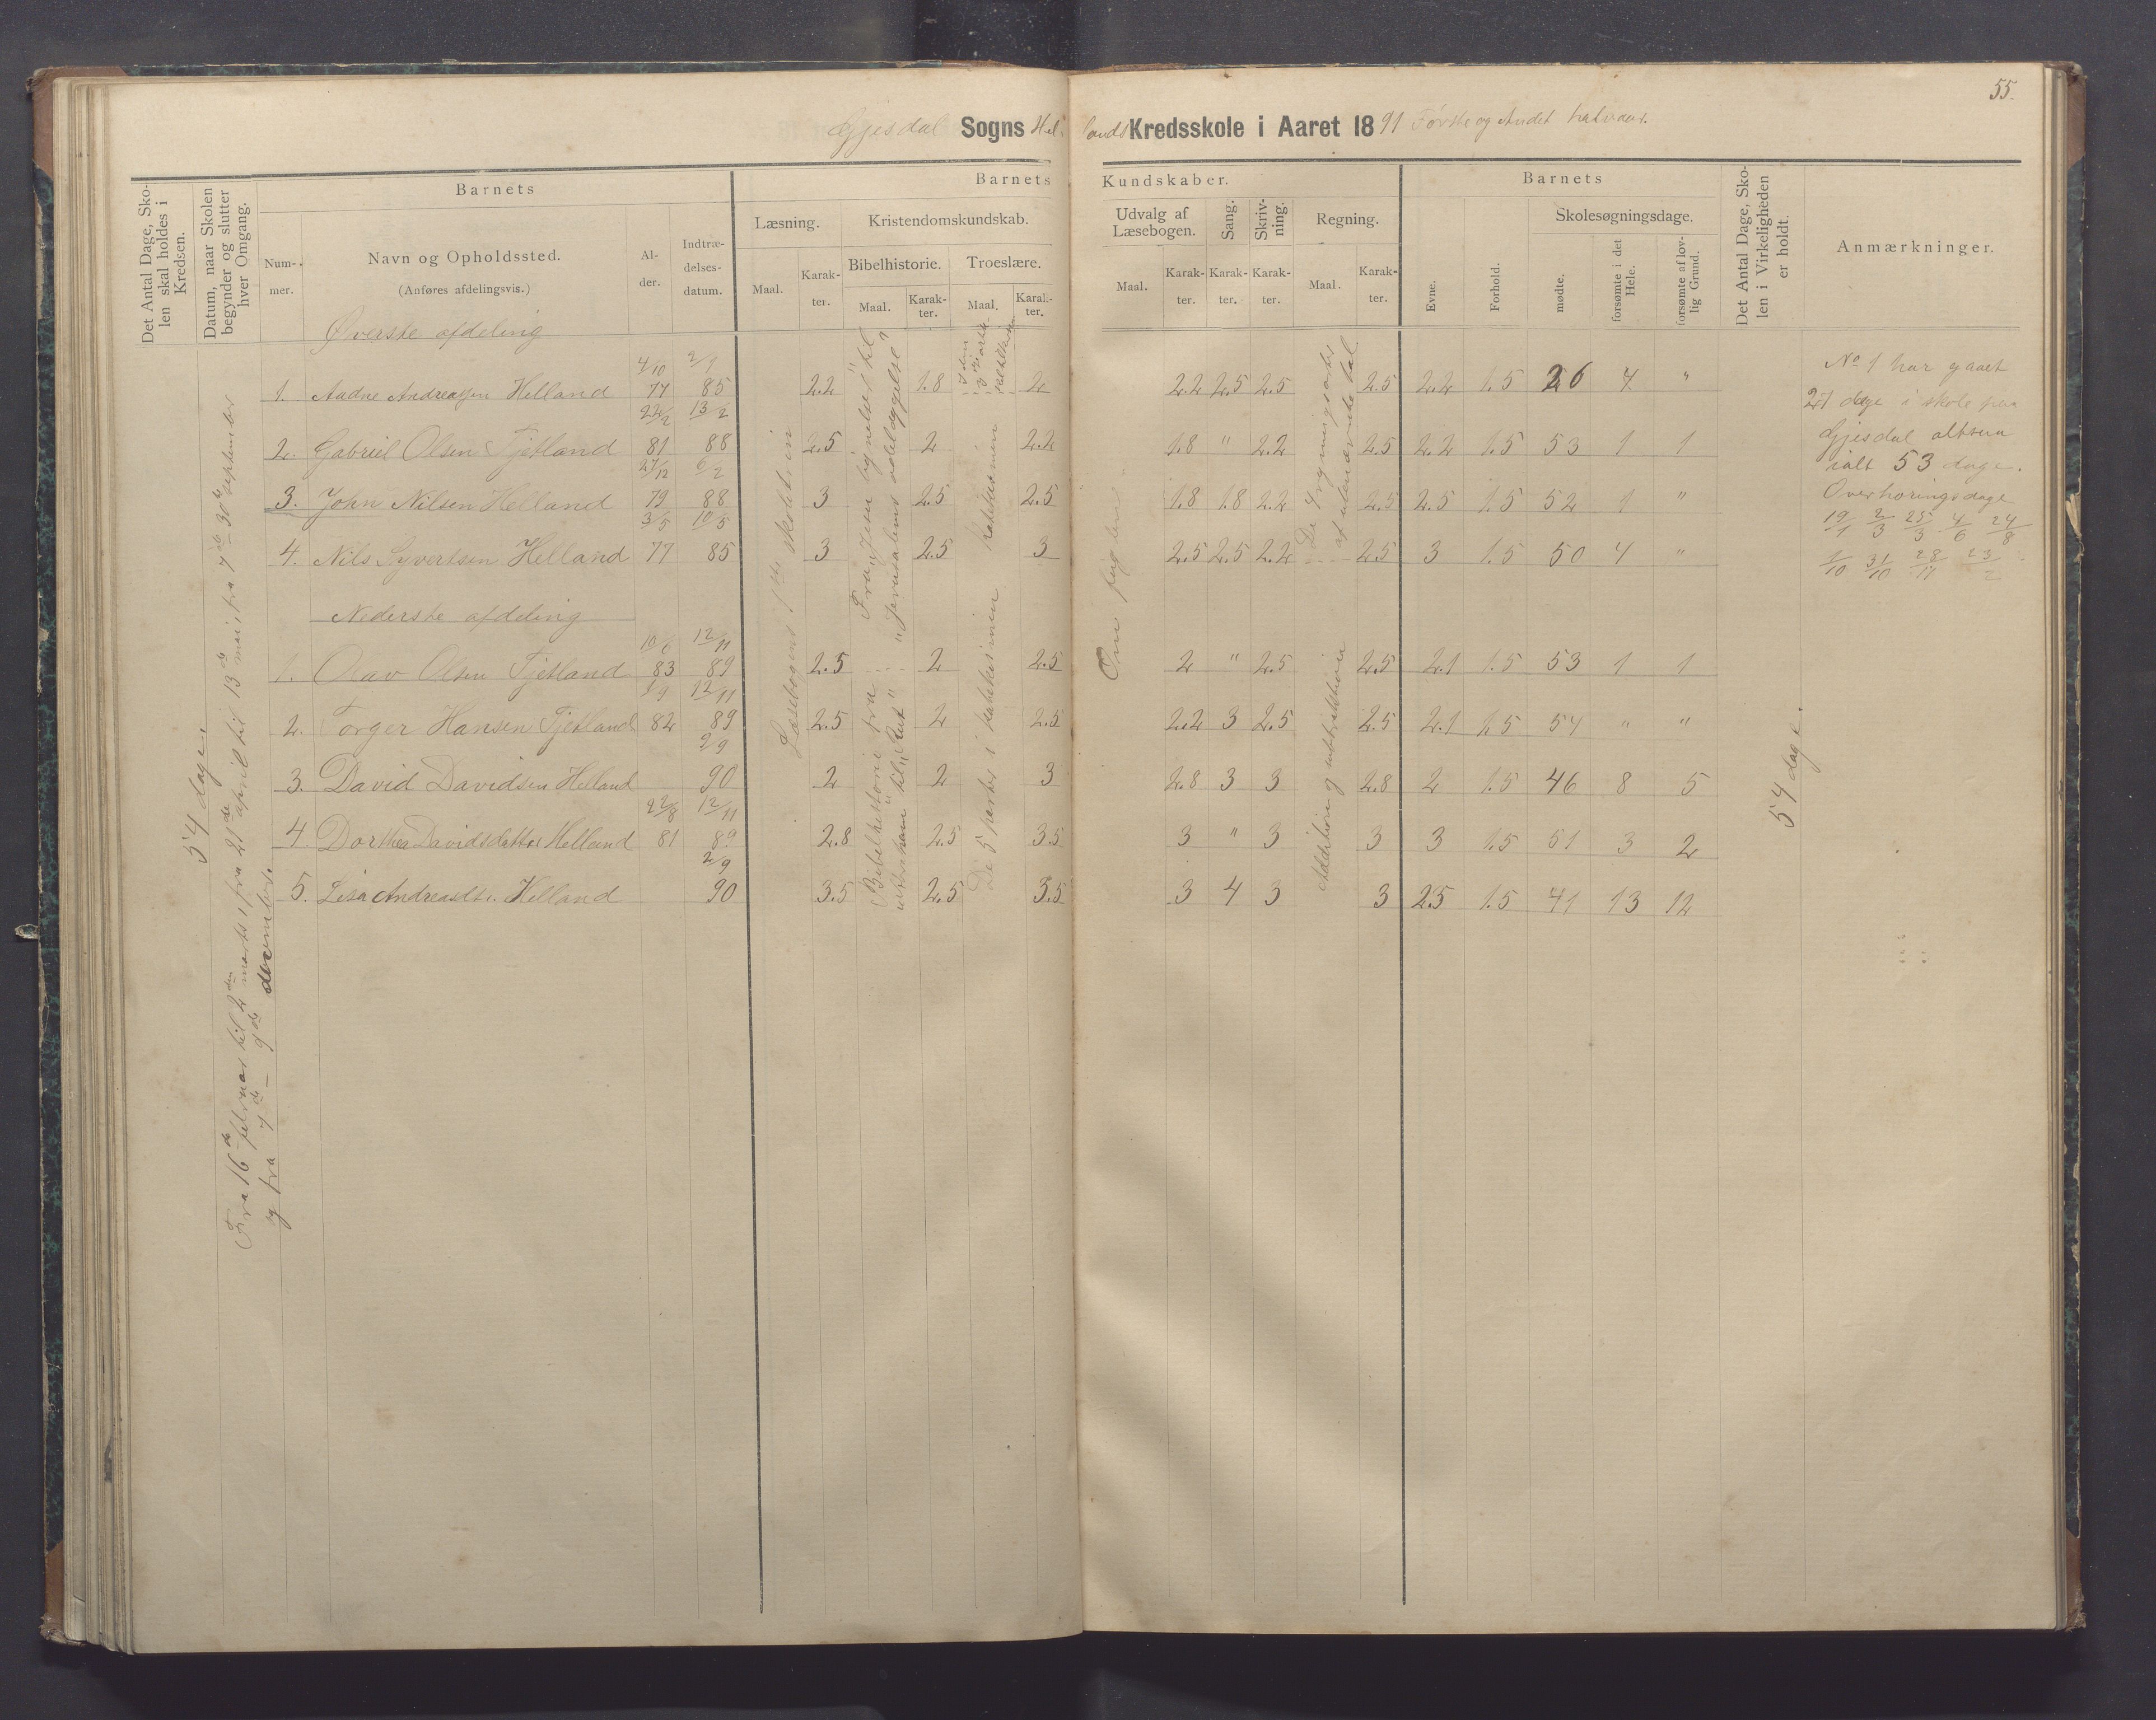 55.
Gjesdal Sogns Hellands Kredsskole i Aaret 1891 Første og Andet halvaar.
Det Antal Dage, Skolen skal holdes i Kredsen.
Datum, naar Skolen begynder og slutter hver Omgang.
Barnets
Nummer.
Navn og Opholdssted.
(Anføres afdelingsvis.)
Alder.
Indtrædelsesdatum.
Barnets Kundskaber.
Læsning.
Maal. Karakter.
Kristendomskundskab.
Bibelhistorie. Troeslære.
Maal. Karakter. Maal. Karakter.
Udvalg af Læsebogen.
Maal. Karakter.
Sang. Karakter.
Skrivning. Karakter.
Regning.
Maal. Karakter.
Barnets
Evne. Forhold.
Skolesøgningsdage.
mødte. forsømte i det Hele. forsømte af lovlig Grund.
Det Antal Dage, Skolen i Virkeligheden er holdt.
Anmærkninger.
Øverste afdeling
4/10 2/9
1. Aadne Andreassen Helland 77 85 2.2 1.8 2 2.2 2.5 2.5 2.5 2.2 1.5 26 4 "
22/2 13/2
2. Gabriel Olsen Fjetland 81 88 2.5 2 2.2 1.8 " 2.2 2.5 2.2 1.5 53 1 1
27/12 6/2
3. John Nilsen Helland 79 88 3 2.5 2.5 1.8 1.8 2.2 2.5 2.5 1.5 52 1 "
3/5 10/5
4. Nils Syvertsen Helland 77 85 3 2.5 3 2.5 2.5 2.2 2.5 3 1.5 50 4 "
Nederste afdeling
10/6 12/11
1. Olav Olsen Fjetland 83 89 2.5 2 2.5 2 " 2.5 2.5 2.1 1.5 53 1 1
12/11
2. Torger Hansen Fjetland 82 89 2.5 2 2.5 2.2 3 2.5 2.5 2.1 1.5 54 " "
2/9
3. David Davidsen Helland 90 2 2 3 2.8 3 3 2.8 2 1.5 46 8 5
22/8 12/11
4. Dorthea Davidsdatter Helland 81 89 2.8 2.5 3.5 3 " 3 3 3 1.5 51 3 2
2/9
5. Lisa Andreasdtr. Helland 90 3.5 2.5 3.5 3 4 3 3 2.5 1.5 41 13 12
54 dage.
Fra 16de februar til 2den marts, fra 21de april til 13de mai, fra 7de – 30te september
og fra 7de – 9de december.
Læsebogens 1ste skoletrin
Fra "Jesu lignelser" til
"Jerusalems ødelæggelse"
Bibelhistorie fra
til "Rut"
De 5 parter i katekismien
De 4 regningsarter
af ubenævnte tal
Addition og subtraktion
54 dage.
No 1 har gaaet
27 dage i skole paa
Gjesdal altsaa
ialt 53 dage.
Overhøringsdage
19/1 2/3 25/3 4/6 24/8
1/10 31/10 28/11 23/2